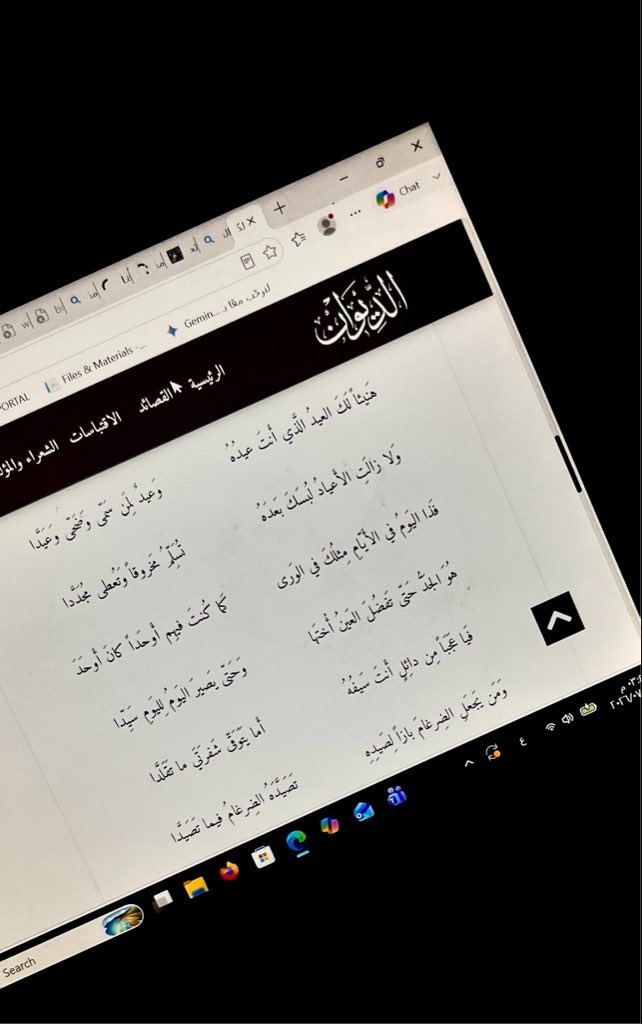 Chat
Gemin... لنرحّب معًا بـ
Files & Materials -...
PORTAL
الديوان
الرئيسية القصائد الاقتباسات الشعراء
هَنيئاً لَكَ العيدُ الَّذي أَنتَ عيدُهُ
وَعيدٌ لِمَن سَمّى وَضَحّى وَعَيَّدا
وَلا زالَتِ الأَعيادُ لُبسَكَ بَعدَهُ
تُسَلِّمُ مَخروقاً وَتُعطى مُجَدَّدا
فَذا اليَومُ في الأَيّامِ مِثلُكَ في الوَرى
كَما كُنتَ فيهِم أَوحَداً كانَ أَوحَدا
هُوَ الجَدُّ حَتّى تَفضُلَ العَينُ أُختَها
وَحَتّى يَصيرَ اليَومُ لِليَومِ سَيِّدا
فَيا عَجَباً مِن دائِلٍ أَنتَ سَيفُهُ
أَما يَتَوَقّى شَفرَتَي ما تَقَلَّدا
وَمَن يَجعَلِ الضِرغامَ بازاً لِصَيدِهِ
تَصَيَّدَهُ الضِرغامُ فيما تَصَيَّدا
Search
ع